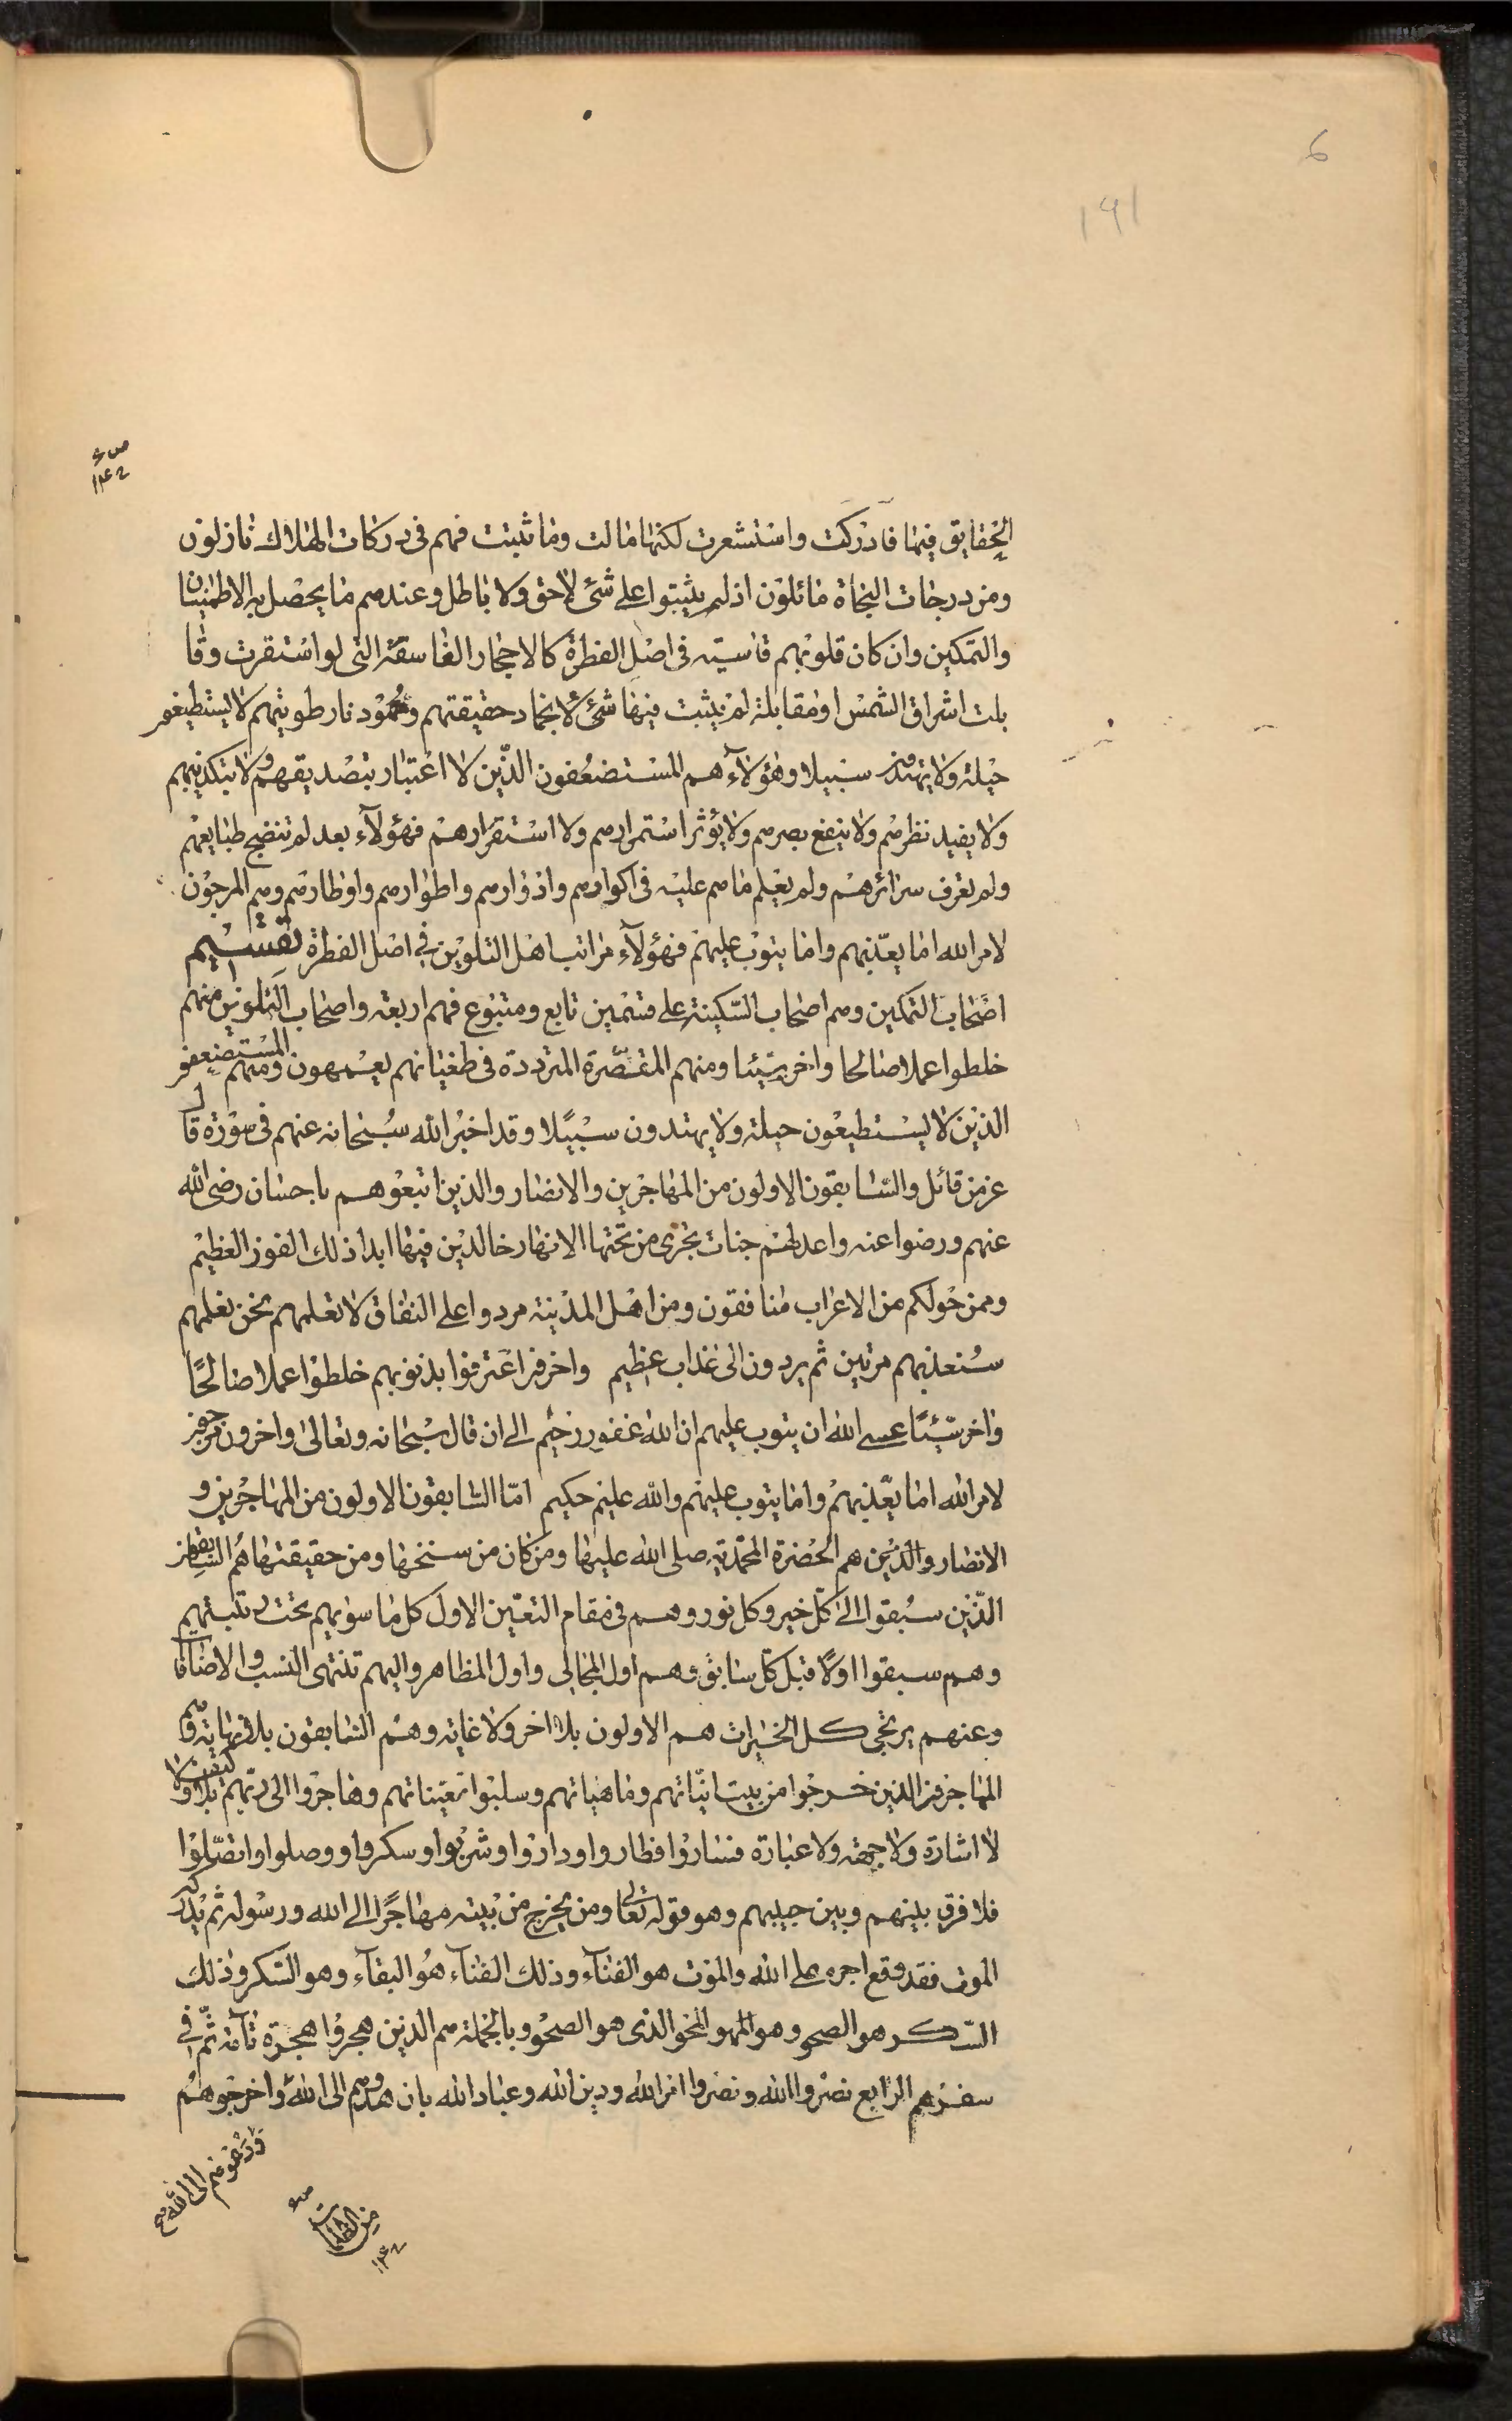 6
191
ص ۶
۱۳۴۰
الحقايق فيها فادركت واستشعرت لكنها مالت وما ثبتت فهم فى دركات الهلاك نازلون
ومن درجات النجاة مائلون اذ لم يثبتوا على شئ لا حق ولا باطل وعندهم ما يحصل به الاطمينان
والتمكين وان كان قلوبهم قاسية فى اصل الفطرة كالاحجار الغاسقة التى لو استقرت وقا
بلت اشراق الشمس او مقابلة لم يثبت فيها شئ لانجماد حقيقتهم وخمود نار طويتهم لا يستطيعون
حيلة ولا يهتدون سبيلا وهؤلآء هم المستضعفون الذين لا اعتبار بتصديقهم ولا بتكذيبهم
ولا يفيد نظرهم ولا ينفع بصرهم ولا يؤثر استمرارهم ولا استقرارهم فهؤلآء بعد لم تنضج طبايعهم
ولم تعرف سرائرهم ولم يعلم ما هم عليه فى اكوارهم وادوارهم واطوارهم واوطارهم وهم المرجون
لامر الله اما يعذبهم واما يتوب عليهم فهؤلآء مراتب اهل التلوين فى اصل الفطرة تقسيم
اصحاب التمكين وهم اصحاب السكينة على قسمين تابع ومتبوع فهم اربعة واصحاب التلوين منهم
خلطوا عملا صالحا واخر سيئا ومنهم المقصرة المترددة فى طغيانهم يعمهون ومنهم المستضعفون
الذين لا يستطيعون حيلة ولا يهتدون سبيلا وقد اخبر الله سبحانه عنهم فى سورة قال
عز من قائل والسابقون الاولون من المهاجرين والانصار والذين اتبعوهم باحسان رضى الله
عنهم ورضوا عنه واعد لهم جنات تجرى من تحتها الانهار خالدين فيها ابدا ذلك الفوز العظيم
وممن حولكم من الاعراب منافقون ومن اهل المدينة مردوا على النفاق لا تعلمهم نحن نعلمهم
سنعذبهم مرتين ثم يردون الى عذاب عظيم واخرون اعترفوا بذنوبهم خلطوا عملا صالحًا
واخر سيئًا عسى الله ان يتوب عليهم ان الله غفور رحيم الى ان قال سبحانه وتعالى واخرون مرجون
لامر الله اما يعذبهم واما يتوب عليهم والله عليم حكيم امّا السابقون الاولون من المهاجرين و
الانصار والذين هم الحضرة المحمدية صلى الله عليها ومن كان من سنخها ومن حقيقتها هم السابقون
الذين سبقوا الى كل خير وكل نور وهم فى مقام التعين الاول كل ما سويهم تحت رتبتهم
وهم سبقوا اولًا قبل كل سابق وهم اول المجالى واول المظاهر واليهم تنتهى النسب والاضافات
وعنهم يرتجى كل الخيرات هم الاولون بلا اخر ولا غاية وهم السابقون بلا نهاية وهم
المهاجرون الذين خرجوا من بيت انياتهم وماهياتهم وسلبوا تعيناتهم وهاجروا الى ربهم بلا كيف ولا
لا اشارة ولا جهة ولا عبارة فساروا فطاروا وداروا وشربوا وسكروا ووصلوا واتصلوا
فلا فرق بينهم وبين حبيبهم وهو قوله تعالى ومن يخرج من بيته مهاجرًا الى الله ورسوله ثم يدركه
الموت فقد وقع اجره على الله والموت هو الفنآء وذلك الفنآء هو البقآء وهو السكر وذلك
السكر هو الصحو وهو المحو المحو الذى هو الصحو وبالجملة هم الذين هجروا هجرة تامة ثم فى
سفرهم الرابع نصروا الله ونصروا امر الله ودين الله وعباد الله بان هدوهم الى الله واخرجوهم
ودعوهم الى الله صح
من الظلمات
ص ۶
۱۳۴۰